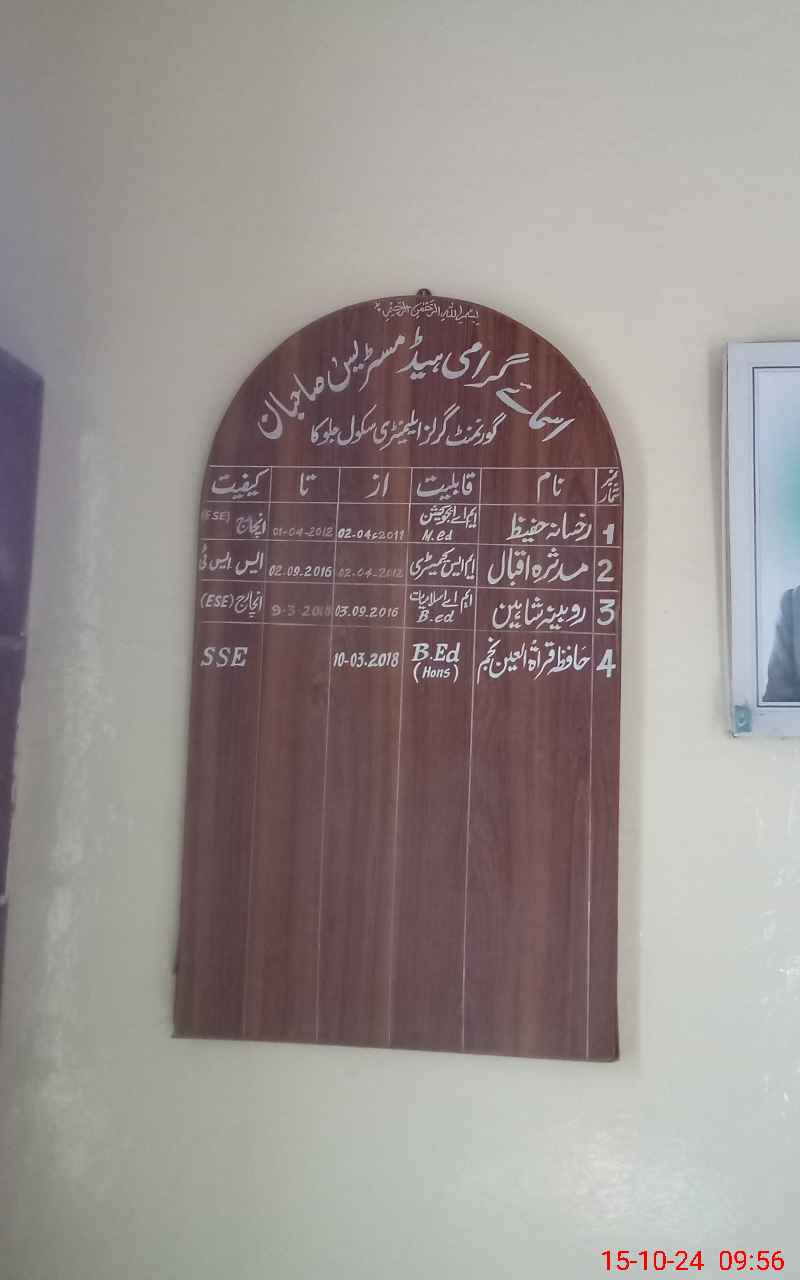 بسم اللہ الرحمن الرحیم
اسمائے گرامی ہیڈ مسٹریس صاحبان
گورنمنٹ گرلز ایلیمنٹری سکول جلوکا
نمبر شمار نام قابلیت از تا کیفیت
1 رخسانہ حفیظ ایم اے ایجوکیشن M.ed 02.04.2011 01-04-2012 انچارج (ESE)
2 مدثرہ اقبال ایم ایس کیمسٹری 02.04-2012 02.09.2016 ایس ایس ٹی
3 روبینہ شاہین ایم اے اسلامیات B.ed 03.09.2016 9-3-2018 انچارج (ESE)
4 حافظ قراۃ العین نجم B.Ed (Hons) 10-03.2018 SSE
15-10-24 09:56